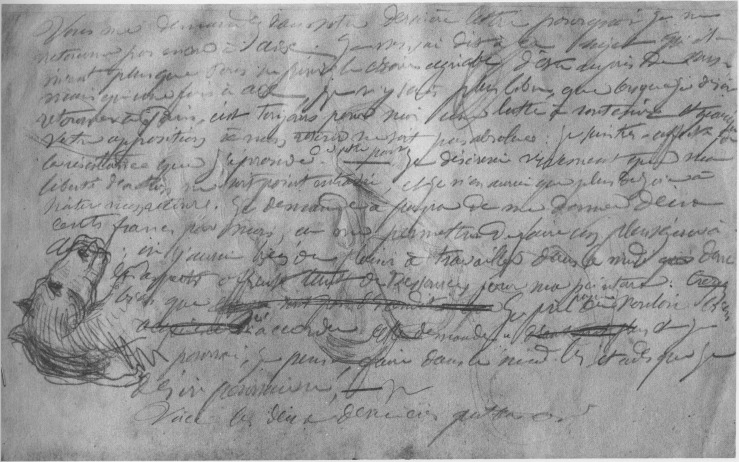 Vous me demandez dans votre dernière lettre pourquoi je ne
retourne pas encore à Aix. Je vous ai dit à ce sujet qu'il
m'est plus que vous ne pensez agréable d'être auprès de vous
mais qu'une fois à Aix je n'y suis plus libre, que lorsque je désire
retourner à Paris, c'est toujours pour moi une lutte à soutenir et quoique
votre opposition à mon retour ne soit pas absolue. je suis très affecté de
la résistance que j'éprouve de votre part. Je désirerais vivement que ma
liberté d'action ne soit point entravée et je n'en aurai que plus de joie à
hâter mon retour. Je demande à papa de me donner deux
cents francs par mois, ça me permettra de faire un plus long séjour à
Aix, et j'aurai bcp de plaisir à travailler dans le midi dont
les aspects offrent tant de ressources pour ma peinture. Croyez
bien que Je prie de vouloir bien
m'accorder cette demande et je
pourrai, je pense, faire dans le midi les études que je
désire poursuivre,
Voici les deux dernières quittances